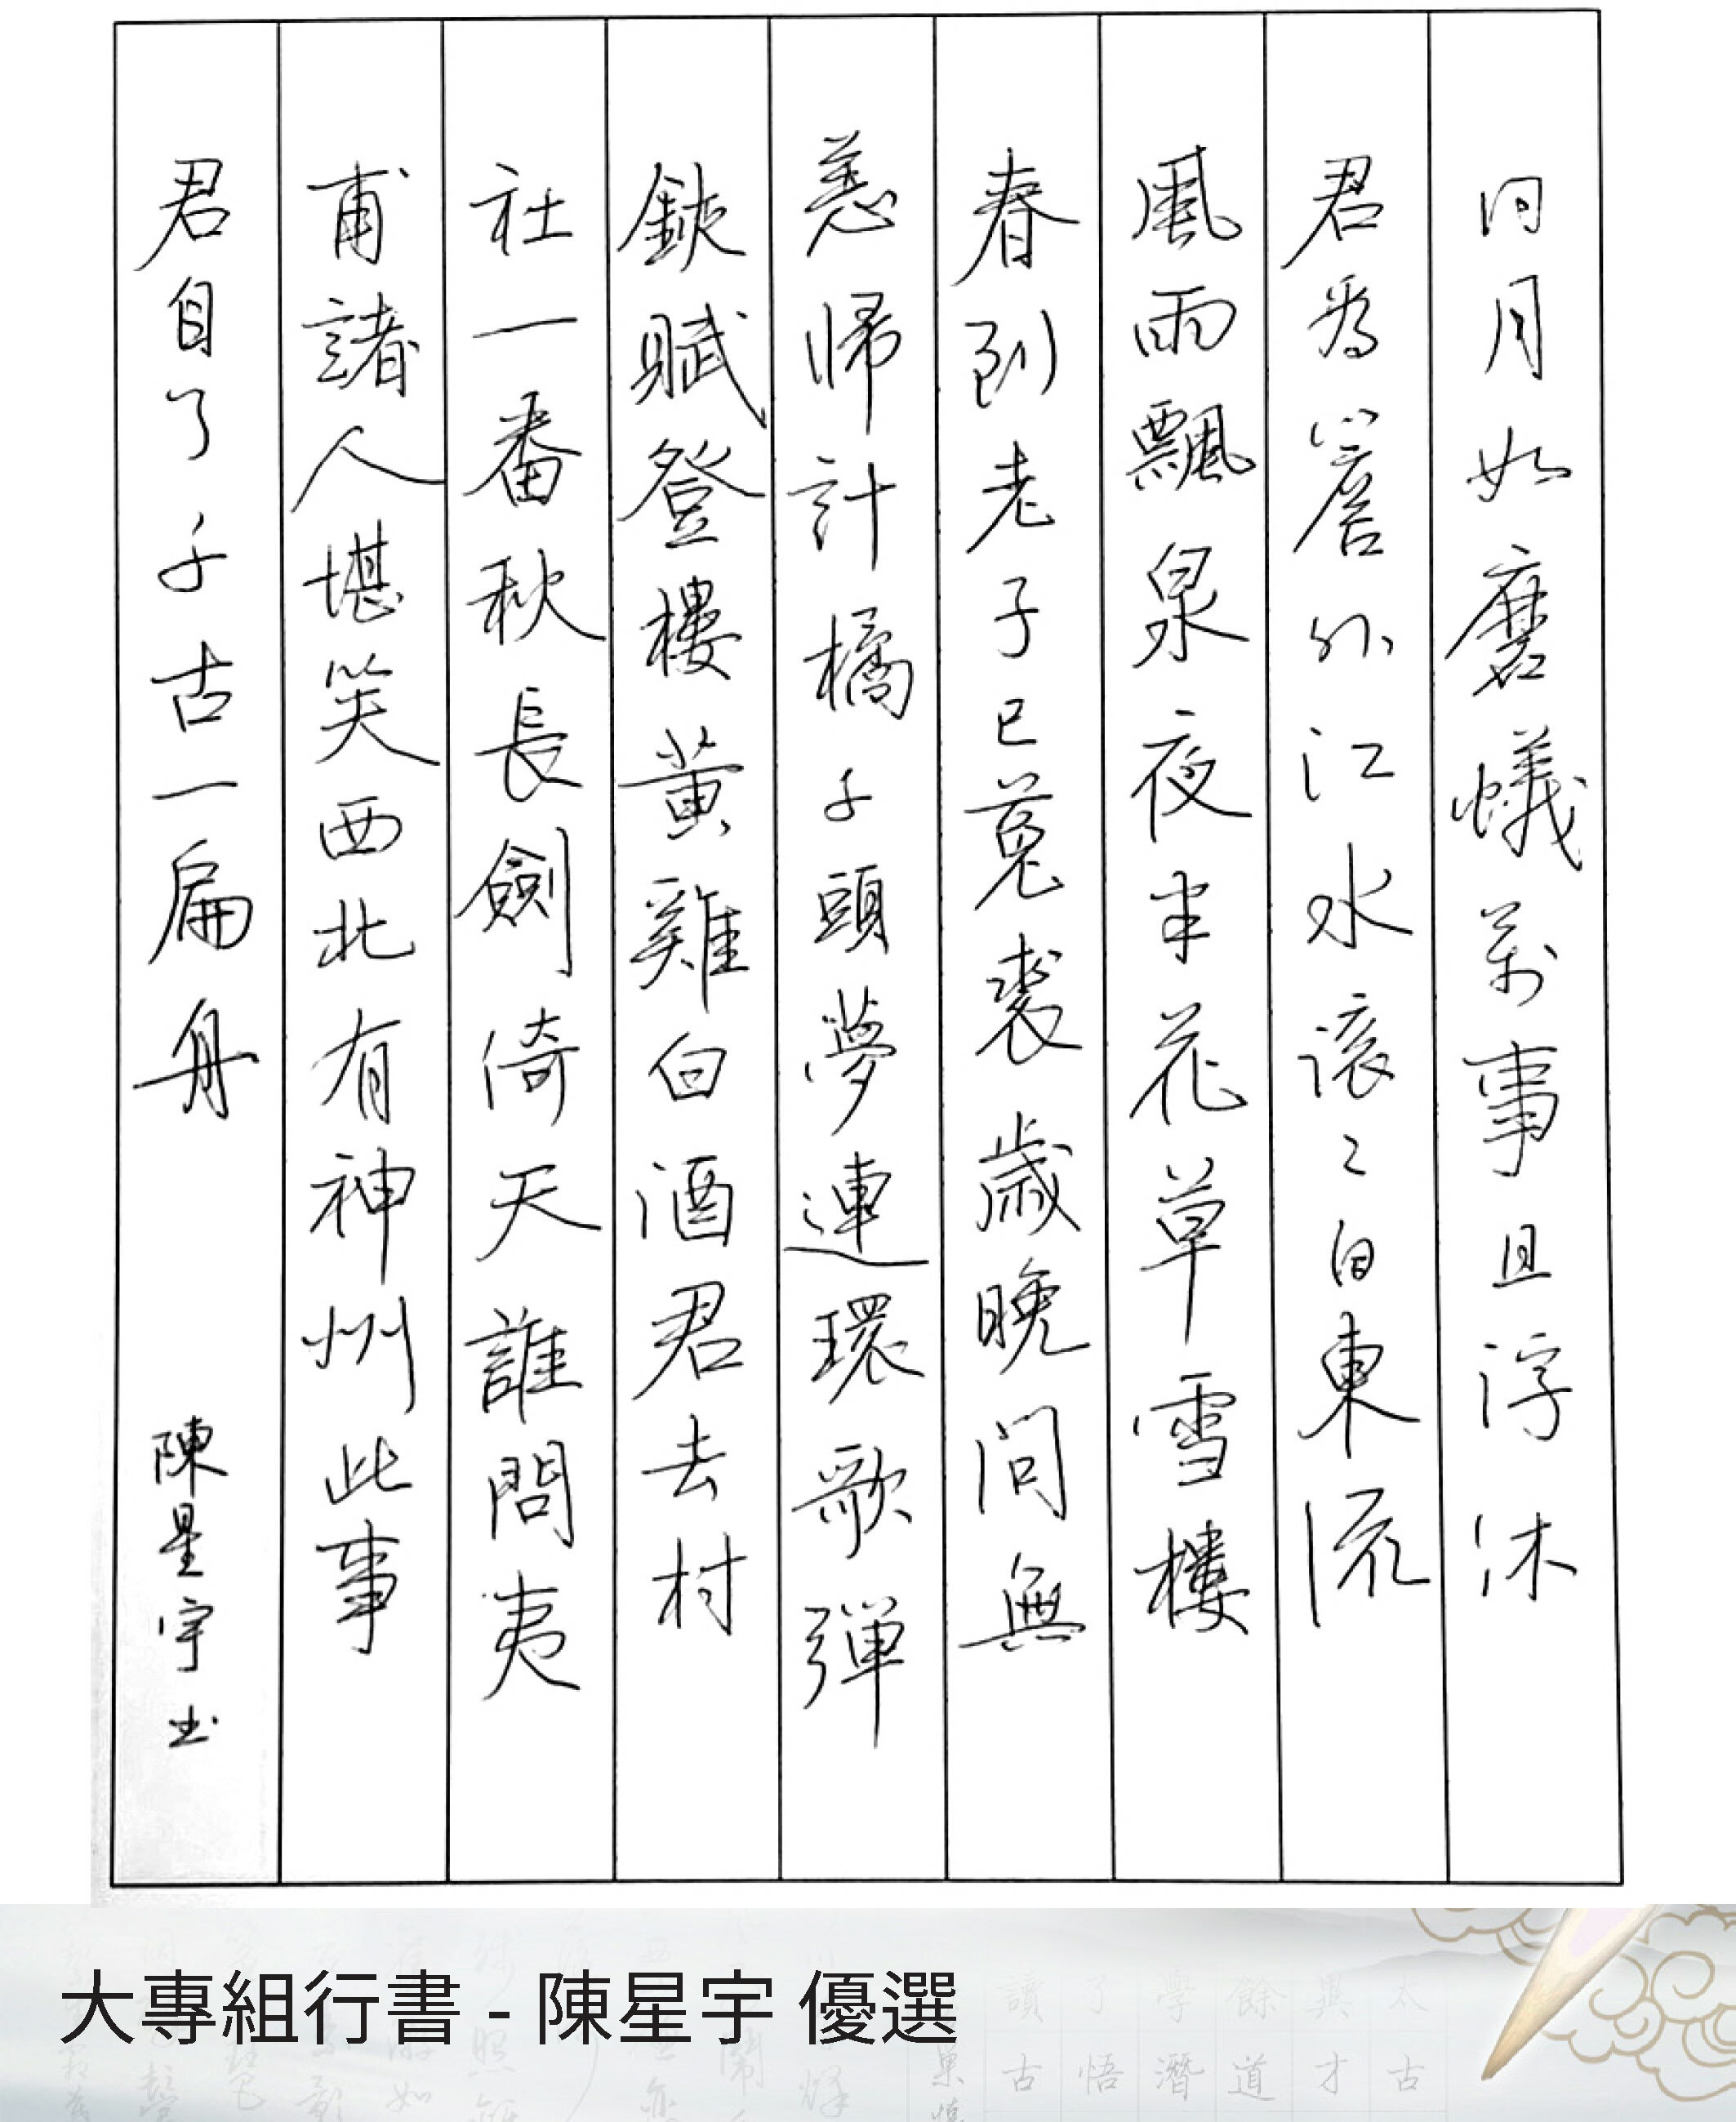 日月如磨蟻萬事且浮沐
君看簷外江水滾〻自東流
風雨飄泉夜半花草雪樓
春到老子已菟裘歲晚問無
恙歸計橘子頭夢連環歌彈
鋏賦登樓黃雞白酒君去村
社一番秋長劍倚天誰問夷
甫諸人堪笑西北有神州此事
君自了千古一扁舟
陳星宇书
大專組行書 - 陳星宇 優選